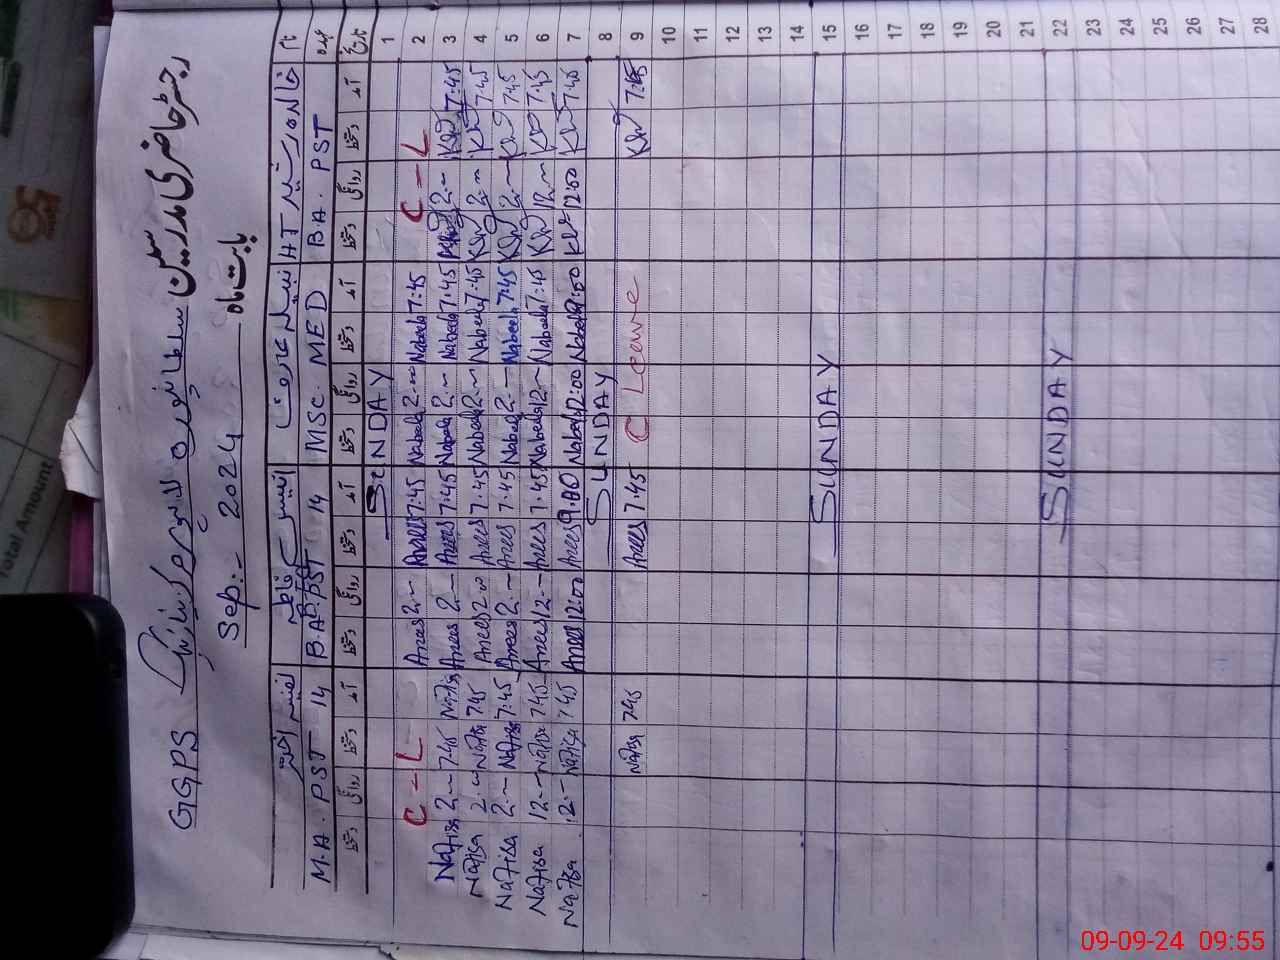 رجسٹر حاضری مدرسین
GGPS
بابت ماہ Sep:- 2024
خالدہ رشید HT نبیلہ انیس فاطمہ نفیسہ اختر
B.A. PST MSc. MED B.A. PST 14 M.A. PST 14
تاریخ آمد دستخط روانگی دستخط آمد دستخط روانگی دستخط آمد دستخط روانگی دستخط آمد دستخط روانگی دستخط
1 SUNDAY
2 C-L Nabeela 7:45 Nabeela 2:00 Anees 7:45 Anees 2:00 C-L
3 7:45 2:00 Nabeela 7:45 Nabeela 2:00 Anees 7:45 Anees 2:00 Nafisa 7:45 Nafisa 2:00
4 7:45 2:00 Nabeela 7:45 Nabeela 2:00 Anees 7:45 Anees 2:00 Nafisa 7:45 Nafisa 2:00
5 7:45 2:00 Nabeela 7:45 Nabeela 2:00 Anees 7:45 Anees 2:00 Nafisa 7:45 Nafisa 2:00
6 7:45 12:00 Nabeela 7:45 Nabeela 12:00 Anees 7:45 Anees 12:00 Nafisa 7:45 Nafisa 12:00
7 7:45 12:00 Nabeela 9:00 Nabeela 12:00 Anees 9:00 Anees 12:00 Nafisa 7:45 Nafisa 12:00
8 SUNDAY
9 7:45 C Leave Anees 7:45 Nafisa 7:45
10
11
12
13
14
15 SUNDAY
16
17
18
19
20
21
22 SUNDAY
23
24
25
26
27
28
Total Amount
09-09-24 09:55